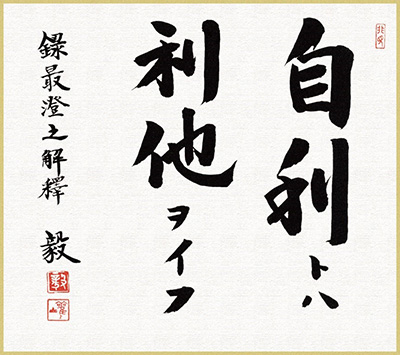 自利トハ
利他ヲイフ
録最澄之解釋 毅
毅